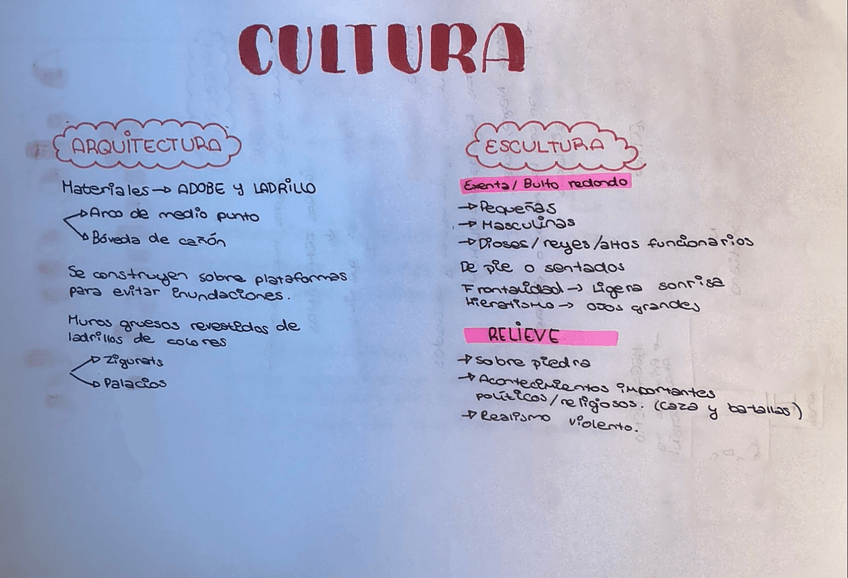 CULTURA
ARQUITECTURA
Materiales → ADOBE Y LADRILLO
→ Arco de medio punto
→ Bóveda de cañón
Se construyen sobre plataformas
para evitar inundaciones.
Muros gruesos revestidos de
ladrillos de colores
→ Zigurats
→ Palacios
ESCULTURA
Exenta / Bulto redondo
→ Pequeñas
→ Masculinas
→ Dioses / reyes / altos funcionarios
De pie o sentados
Frontalidad → Ligera sonrisa
Hieratismo → ojos grandes
RELIEVE
→ Sobre piedra
→ Acontecimientos importantes
políticos / religiosos. (caza y batallas)
→ Realismo violento.